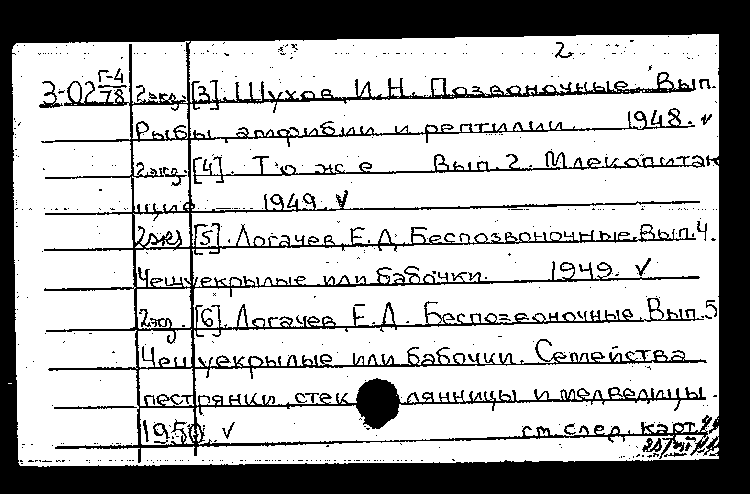 2
З-02 Г-4/78 2экз. [3]. Шухов, И.Н. Позвоночные. Вып.
Рыбы, амфибии и рептилии 1948. v
2экз. [4]. То же Вып. 2. Млекопитаю
щие 1949. v
2экз [5]. Логачев, Е.Д. Беспозвоночные. Вып. 4.
Чешуекрылые или бабочки. 1949. v
2экз. [6]. Логачев, Е.Д. Беспозвоночные. Вып. 5
Чешуекрылые или бабочки. Семейства
пестрянки, стеклянницы и медведицы.
1950 v см. след. карт.